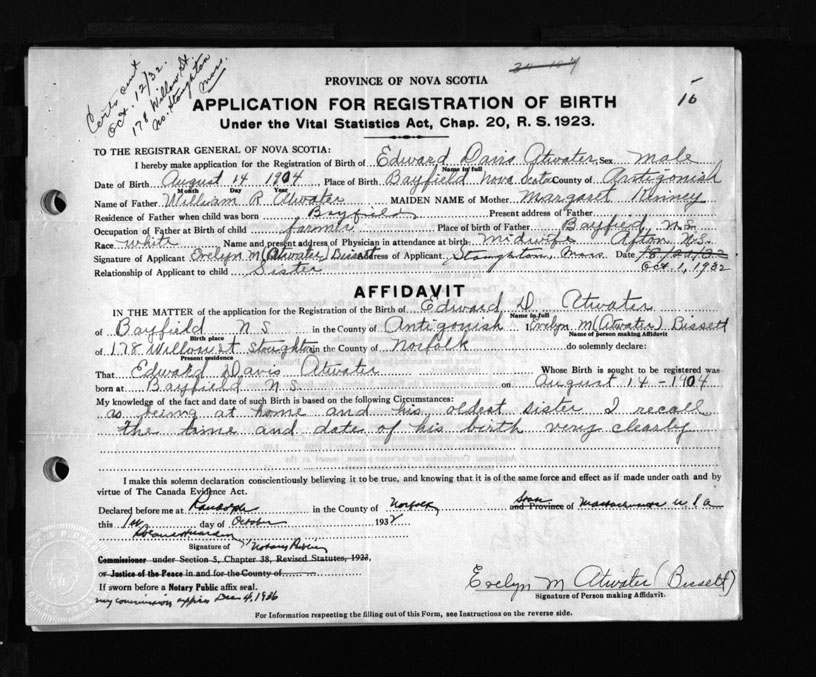 Certs out
Oct. 12/32.
178 Willow St
No. Stoughton
Mass.
15
PROVINCE OF NOVA SCOTIA
APPLICATION FOR REGISTRATION OF BIRTH
Under the Vital Statistics Act, Chap. 20, R. S. 1923.
TO THE REGISTRAR GENERAL OF NOVA SCOTIA:
I hereby make application for the Registration of Birth of Edward Davis Atwater Sex male
Name in full
Date of Birth August 14 1904 Place of Birth Bayfield Nova Scotia County of Antigonish
Month Day Year
Name of Father William R Atwater MAIDEN NAME of Mother Margaret Kinney
Residence of Father when child was born Bayfield Present address of Father
Occupation of Father at Birth of child farmer Place of birth of Father Bayfield N.S.
Race white Name and present address of Physician in attendance at birth midwife Afton N.S.
Signature of Applicant Evelyn M (Atwater) Bissett Address of Applicant Stoughton, Mass. Date
Oct. 1, 1932
Relationship of Applicant to child Sister
AFFIDAVIT
IN THE MATTER of the application for the Registration of the Birth of Edward D. Atwater
Name in full
of Bayfield N S in the County of Antigonish I Evelyn M (Atwater) Bissett
Birth place Name of person making Affidavit
of 178 Willow st Stoughton in the County of Norfolk do solemnly declare:
Present residence
That Edward Davis Atwater Whose Birth is sought to be registered was
born at Bayfield N.S. on August 14 - 1904
My knowledge of the fact and date of such Birth is based on the following Circumstances:
as being at home and his oldest sister I recall
the time and date of his birth very clearly
I make this solemn declaration conscientiously believing it to be true, and knowing that it is of the same force and effect as if made under oath and by
virtue of The Canada Evidence Act.
Declared before me at Randolph in the County of Norfolk and Province of Massachusetts U S A
this 1st day of October 1932
Signature of Notary Public
Commissioner under Section 5, Chapter 38, Revised Statutes, 1923,
or Justice of the Peace in and for the County of
If sworn before a Notary Public affix seal.
my commission expires Dec 4, 1936
Evelyn M Atwater (Bissett)
Signature of Person making Affidavit.
For Information respecting the filling out of this Form, see Instructions on the reverse side.